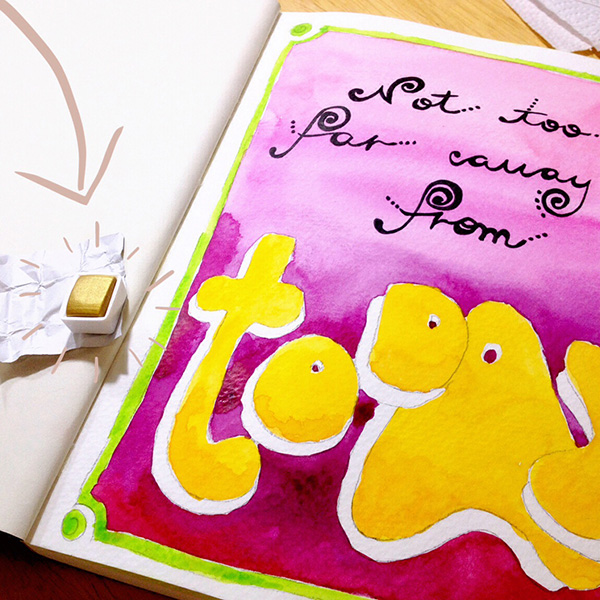 Not too
far away
from